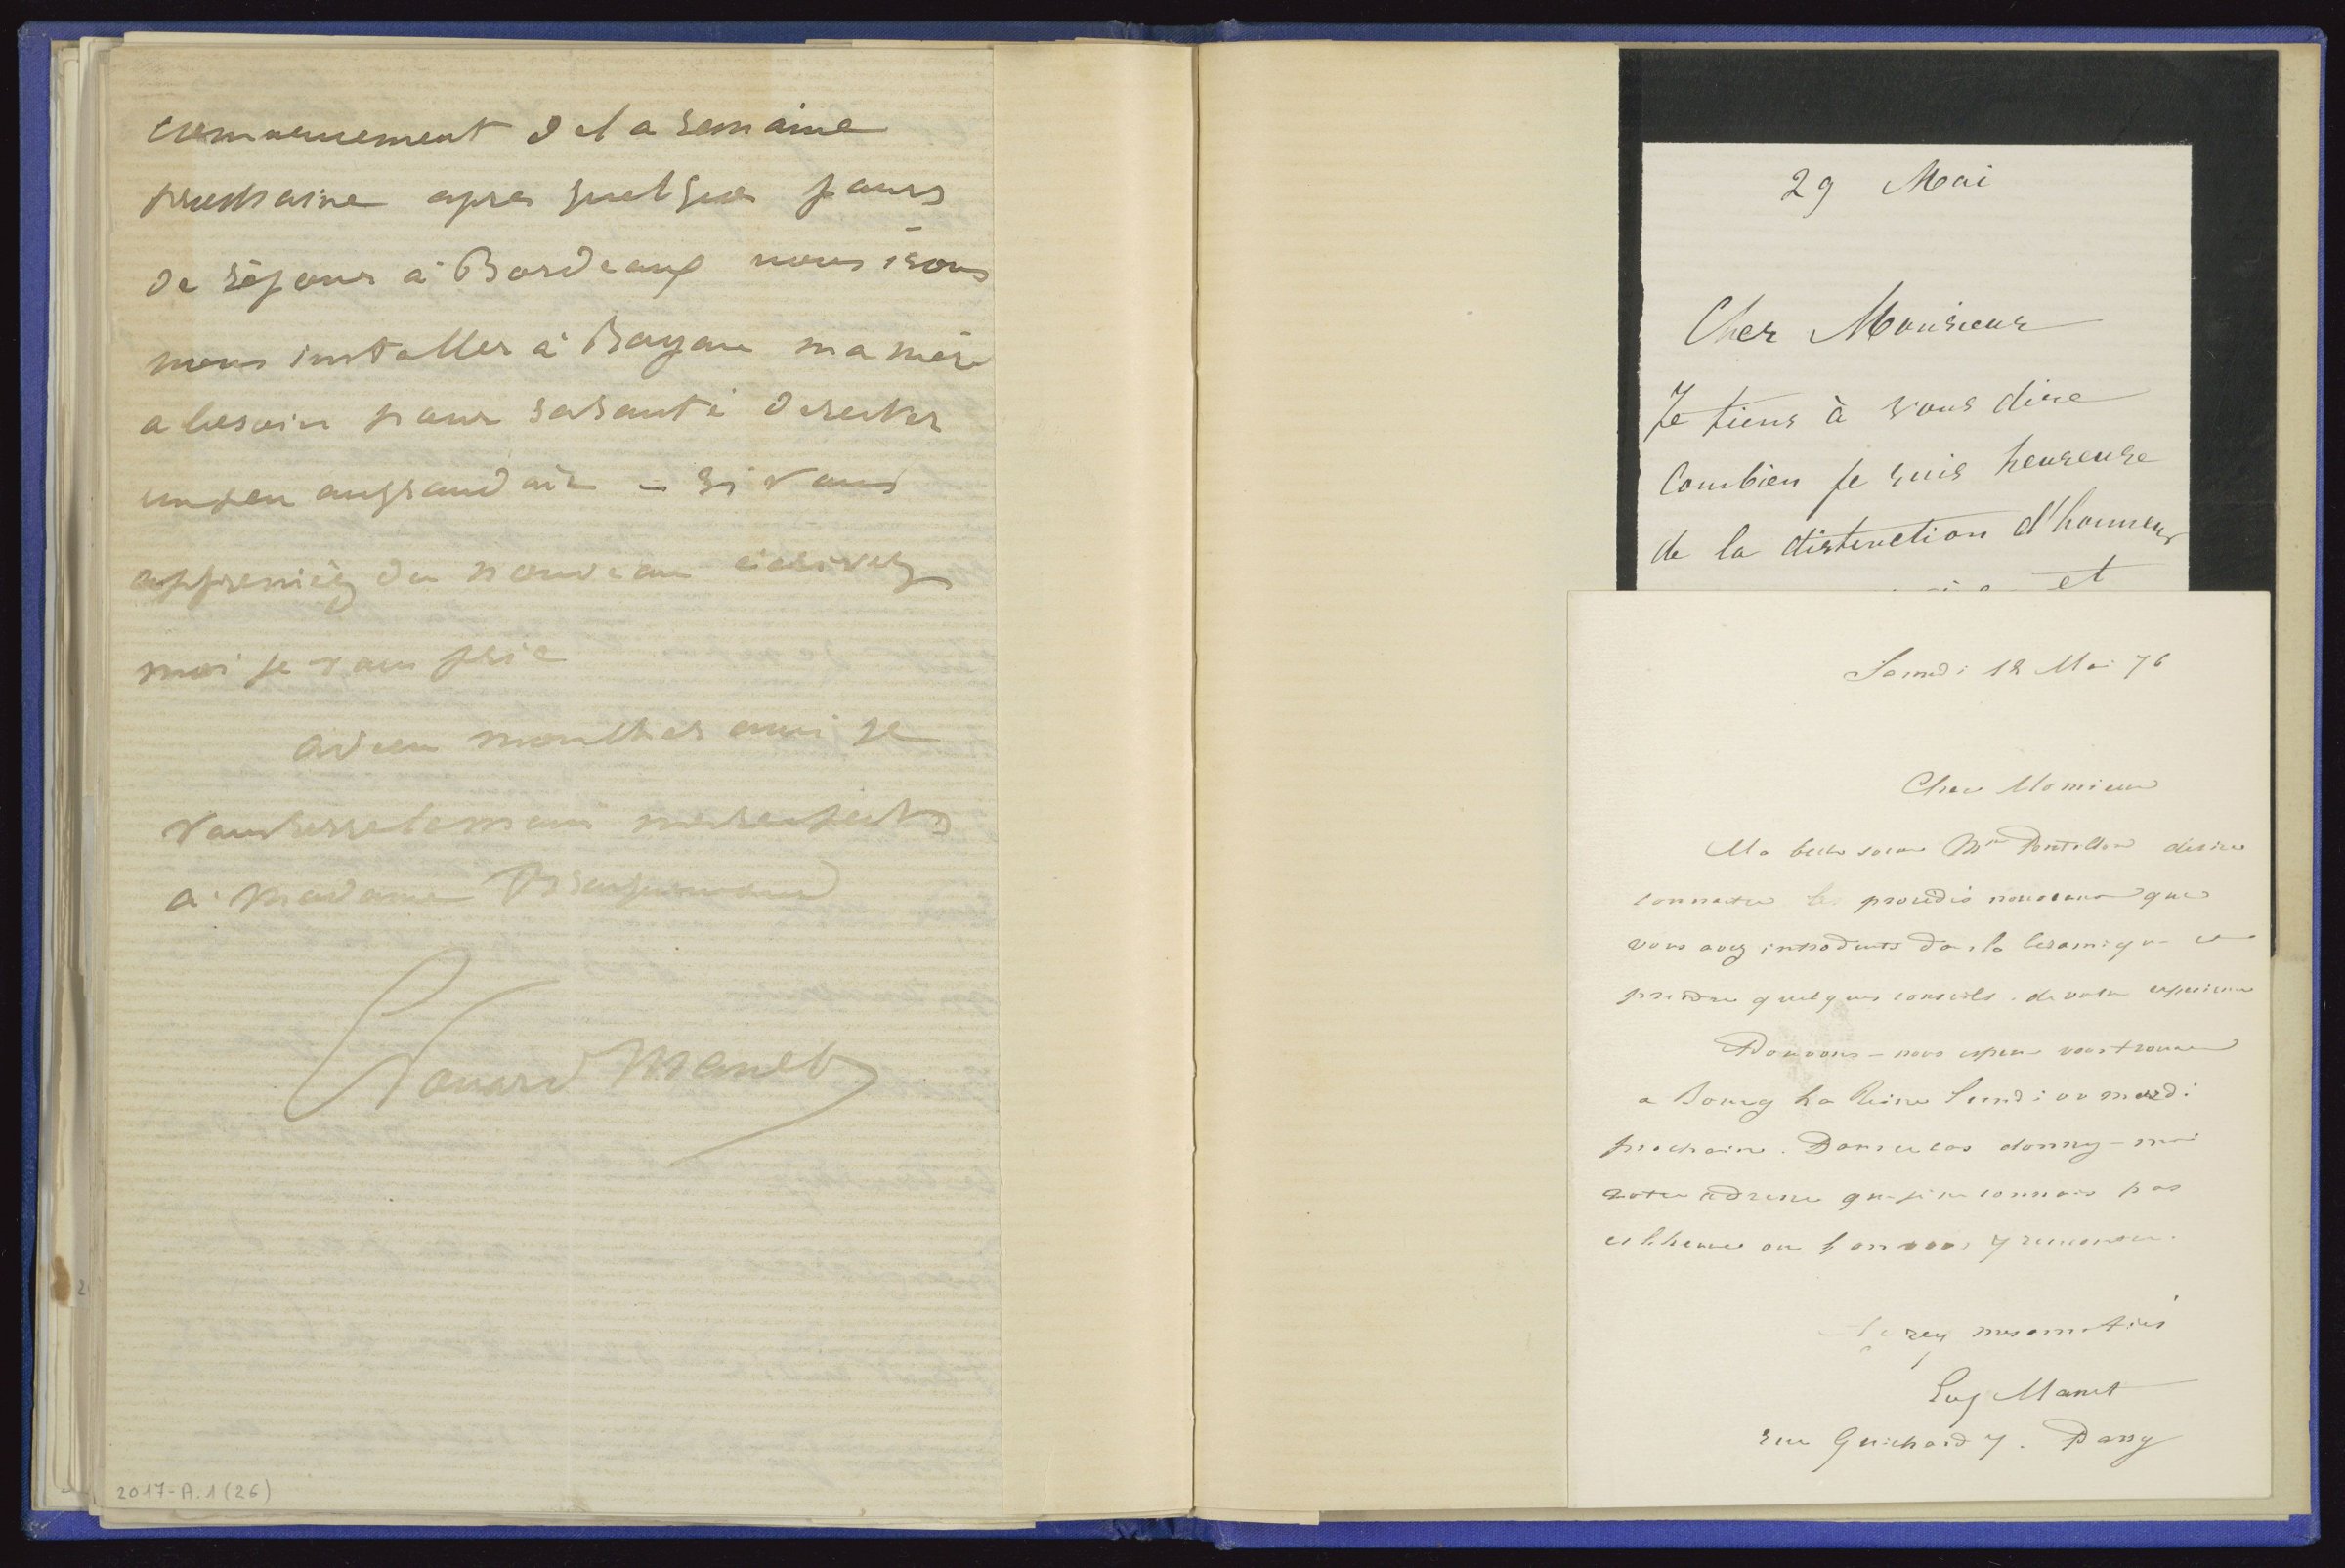 commencement de la semaine
prochaine apres quelques jours
de séjour à Bordeaux nous irons
nous installer à Royan ma mère
a besoin pour sa santé de rester
un peu au grand air – si vous
appreniez du nouveau écrivez
moi je vous prie
adieu mon cher ami je
vous serre la main mes respects
à Madame Bracquemond
Edouard Manet
2017-A.1(26)
29 Mai
Cher Monsieur
Je tiens à vous dire
combien je suis heureuse
de la distinction d'honneur
et
Samedi 18 Mai 76
Cher Monsieur
Ma belle soeur Mme Pontillon désire
connaitre les procédés nouveaux que
vous avez introduits dans la ceramique et
prendre quelques conseils de votre experience
Pouvons-nous esperer vous trouver
a Bourg La Reine lundi ou mardi
prochain. Dans ce cas donnez-moi
votre adresse que je ne connais pas
et l'heure ou l'on vous y rencontre.
mes amitiés
Eug Manet
rue Guichard 7. Passy